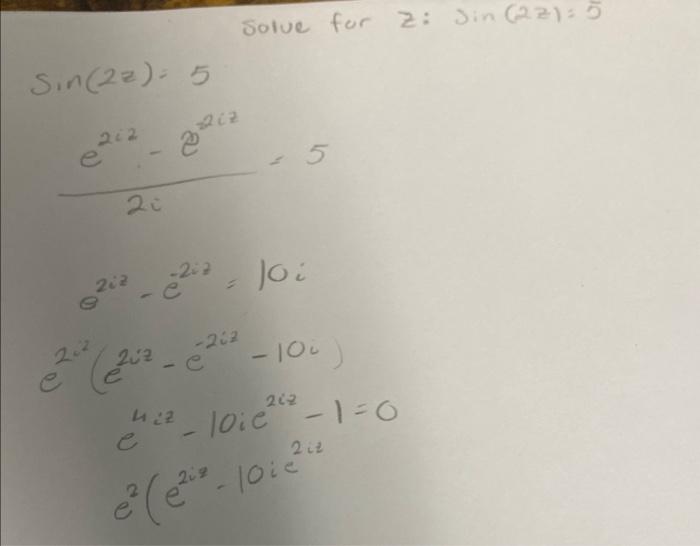 Solve for z: Sin(2z)=5
Sin(2z)= 5
e^{2iz} - e^{-2iz}
/ 2i = 5
e^{2iz} - e^{-2iz} = 10i
e^{2iz}(e^{2iz} - e^{-2iz} - 10i)
e^{4iz} - 10ie^{2iz} - 1 = 0
e^{2}(e^{2iz} - 10ie^{2iz}